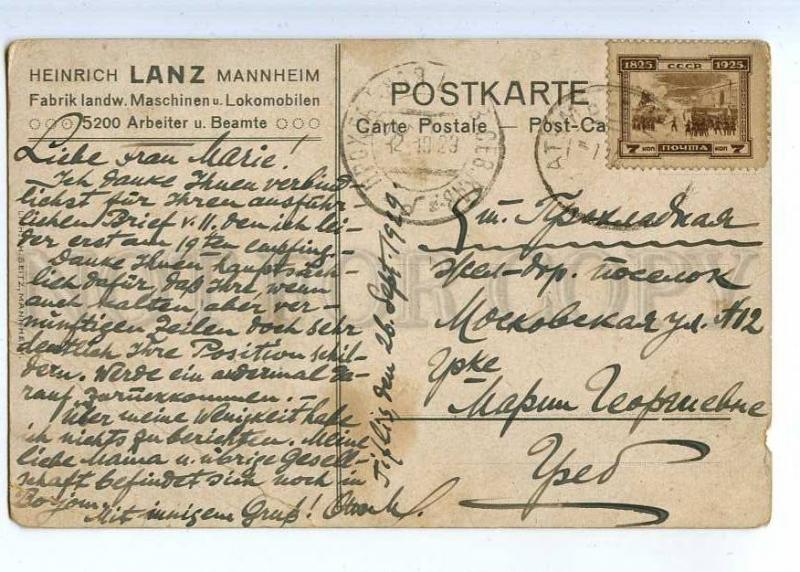 HEINRICH LANZ MANNHEIM
Fabrik landw. Maschinen u. Lokomobilen
5200 Arbeiter u. Beamte
POSTKARTE
Carte Postale — Post-Ca
1825 СССР 1925
7 КОП ПОЧТА 7 КОП
Liebe Frau Marie!
– Ich danke Ihnen verbind-
lichst für Ihren ausführ-
lichen Brief v. 11. den ich lei-
der erst am 19ten empfing –
Danke Ihnen hauptsäch-
lich dafür, daß Ihre, wenn
auch kalten, aber ver-
nünftigen Zeilen doch sehr
deutlich Ihre Position schil-
dern. Werde ein andermal da-
rauf zurückkommen. –
Über meine Wenigkeit habe
ich nichts zu berichten. Meine
liebe Mama u. übrige Gesell-
schaft befindet sich noch in
Borjom.
Mit innigem Gruß!
Tiflis den 26. Sept. 1929
ст. Прохладная
Жел-дор. поселок
Московская ул. №12
Гр-ке
Марии Георгиевне
Греб
NOT FOR COPY